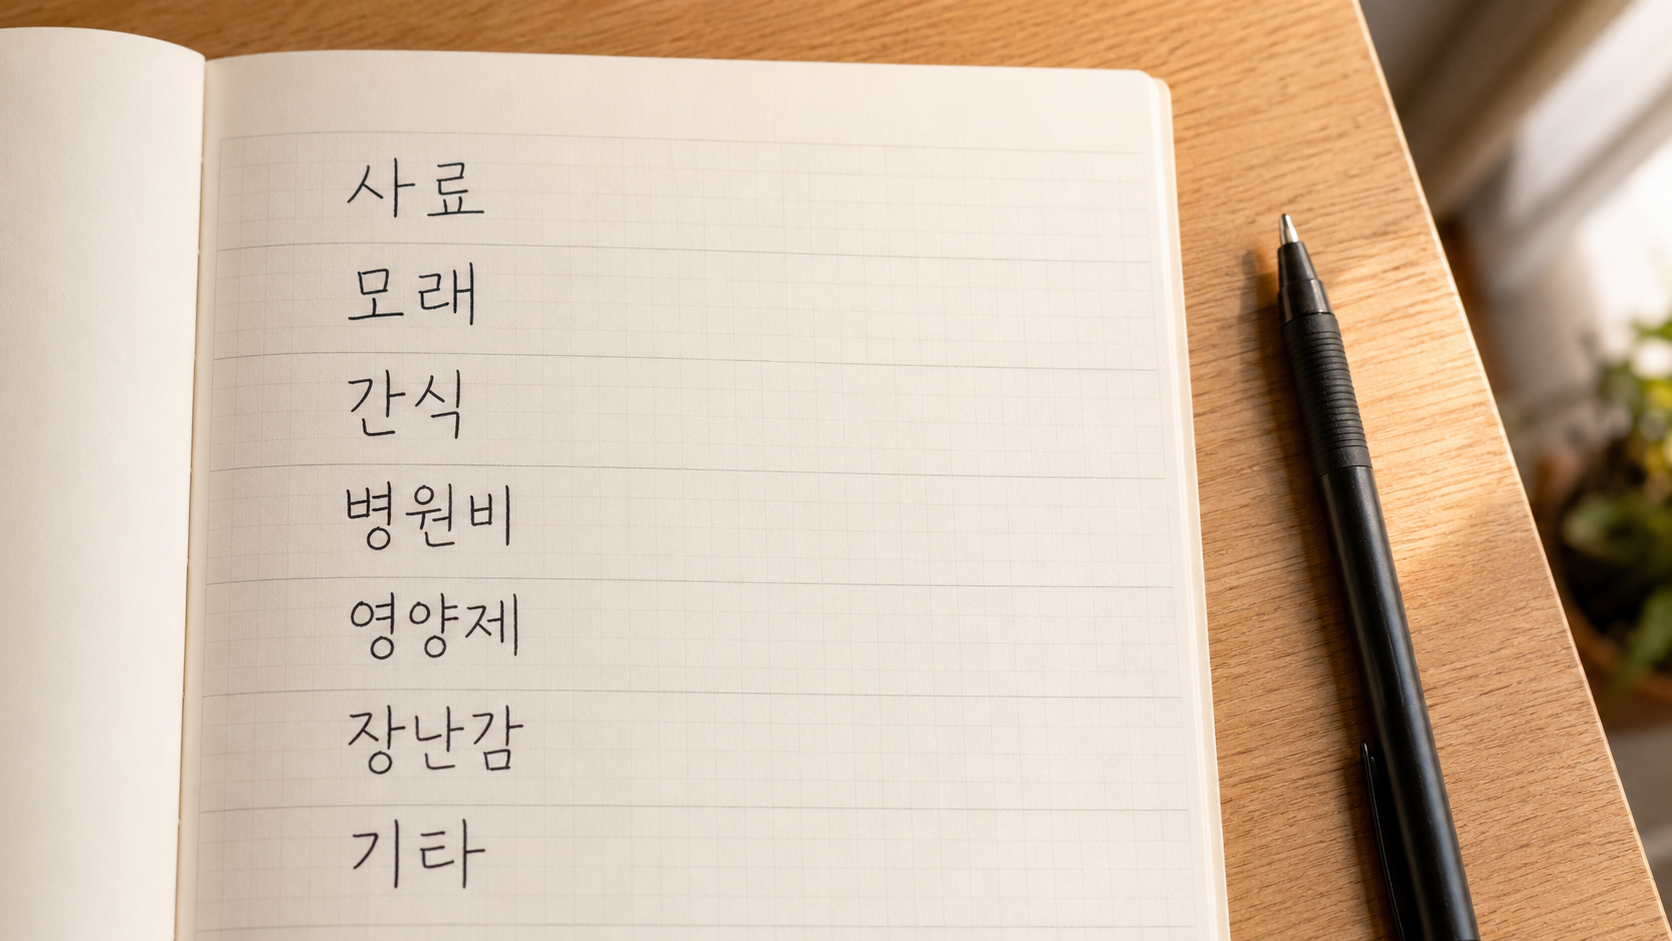 사료
모래
간식
병원비
영양제
장난감
기타